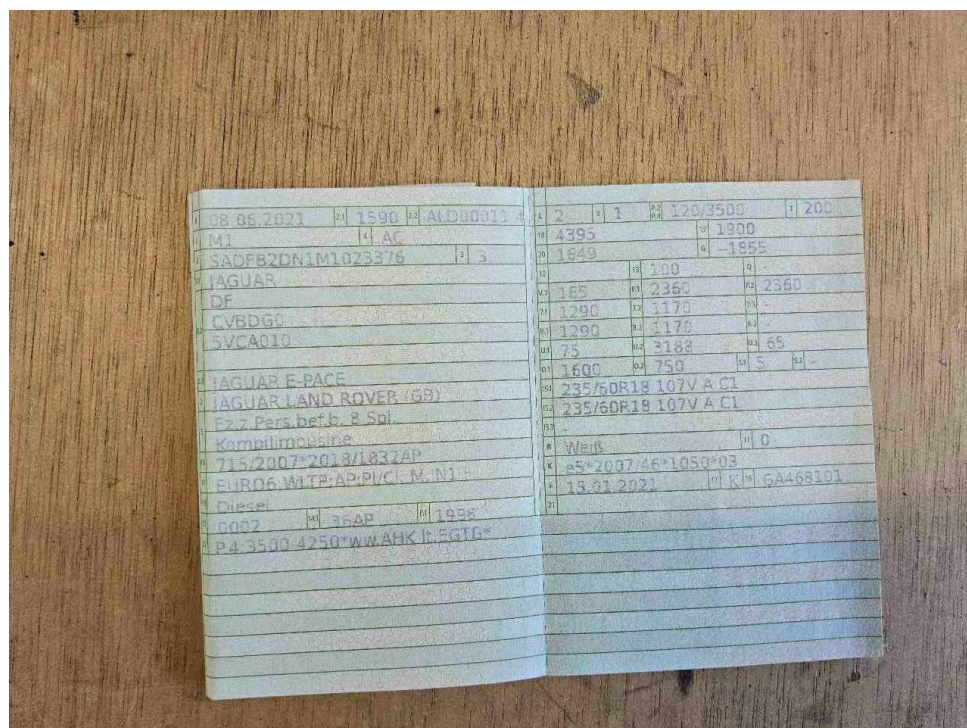 08.06.2021 2.1 1590 2.2 ALD00011 4
M1 4 AC
SADFB2DN1M1023376 3 3
JAGUAR
DF
CVBDG0
5VCA010
JAGUAR E-PACE
JAGUAR LAND ROVER (GB)
Fz.z.Pers.bef.b. 8 Spl.
Kombilimousine
715/2007*2018/1832AP
EURO6 WLTP;AP;PI/CI; M, N1
Diesel
0002 36AP 1998
P.4:3500-4250*ww.AHK lt.EGTG*
L 2 9 1 P.2 P.4 120/3500 T 200
18 4395 19 1900
20 1649 G -1855
12 13 100 Q -
V.7 165 F.1 2360 F.2 2360
7.1 1290 7.2 1170 7.3 -
8.1 1290 8.2 1170 8.3 -
U.1 75 U.2 3188 U.3 65
O.1 1600 O.2 750 S.1 5 S.2 -
15.1 235/60R18 107V A C1
15.2 235/60R18 107V A C1
15.3 -
R Weiß 11 0
K e5*2007/46*1050*03
6 15.01.2021 17 K 16 GA468101
21